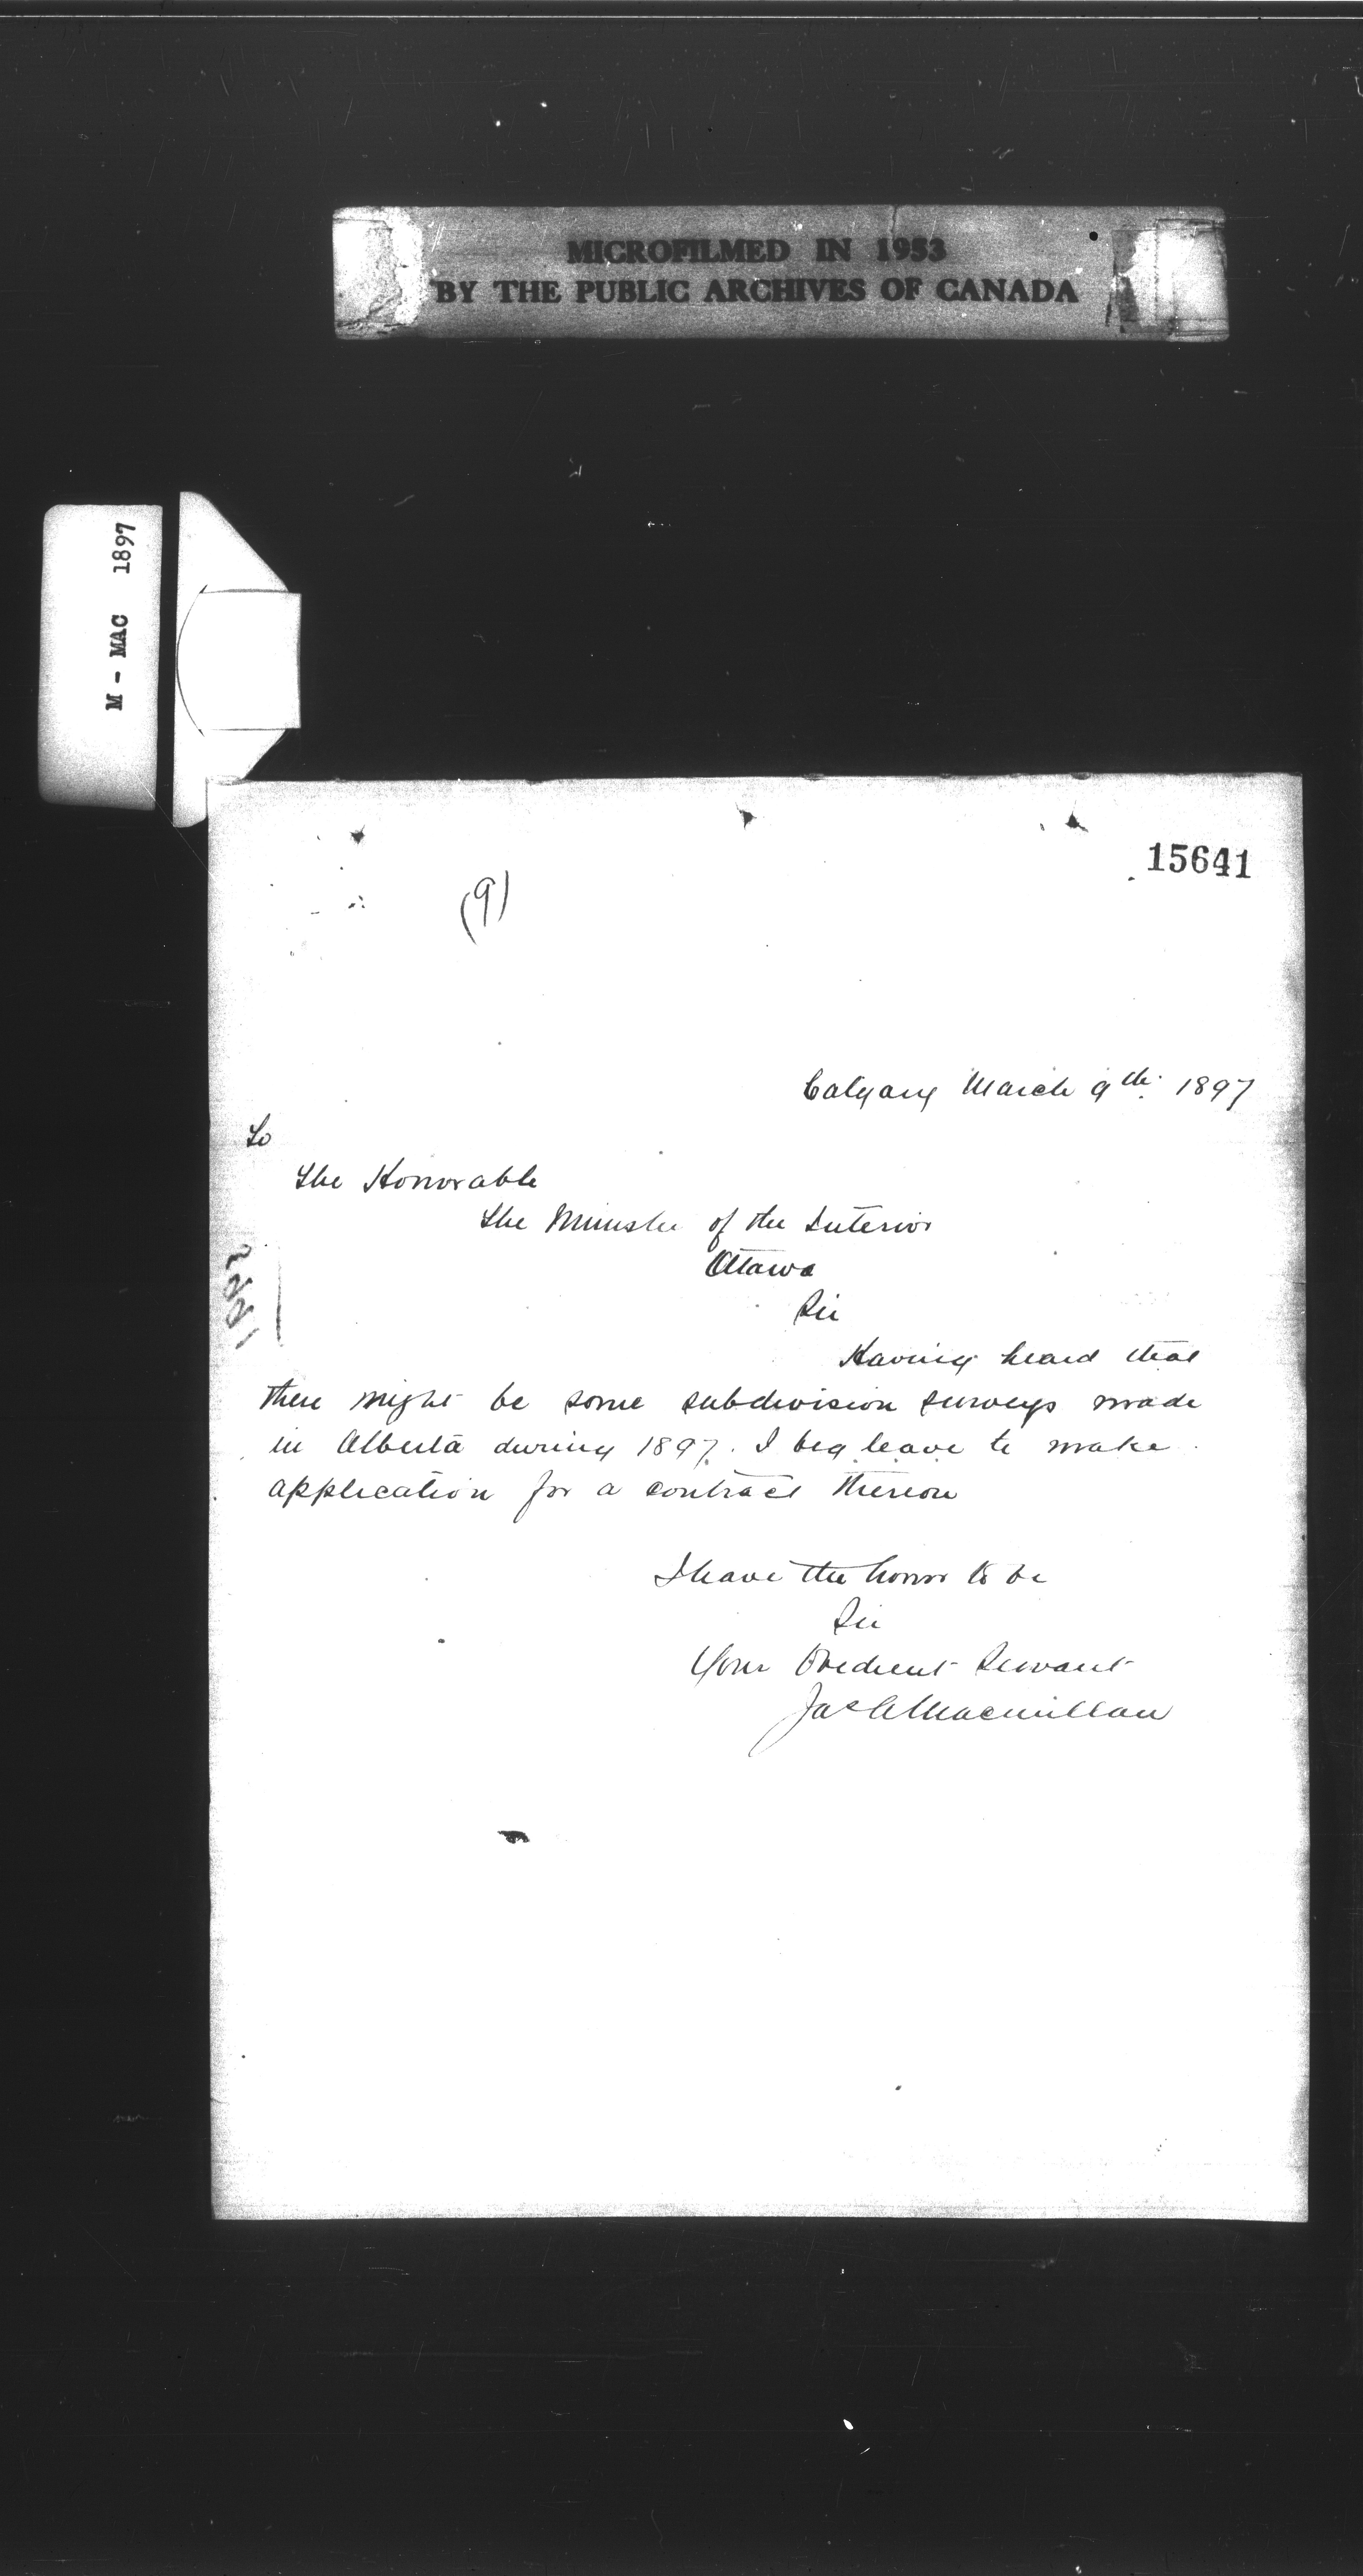 MICROFILMED IN 1953
BY THE PUBLIC ARCHIVES OF CANADA
M - MAC 1897
15641
(9)
Calgary March 9th. 1897
To
The Honorable
The Minister of the Interior
Ottawa
Sir
Having heard that
there might be some subdivision surveys made
in Alberta during 1897. I beg leave to make
application for a contract thereon
I have the honor to be
Sir
Your Obedient Servant
Jas A Macmillan